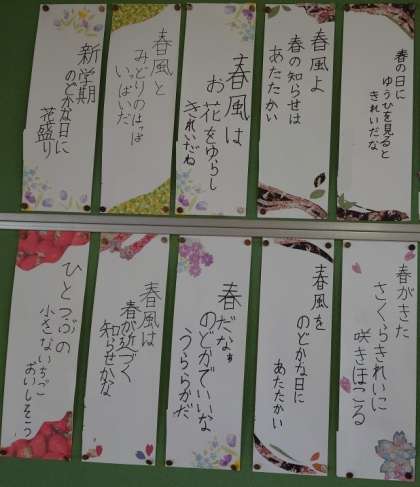 春の日に
ゆうひを見ると
きれいだな
春風よ
春の知らせは
あたたかい
春風は
お花をゆらし
きれいだね
春風と
みどりのはっぱ
いっぱいだ
新学期
のどかな日に
花盛り
春がきた
さくらきれいに
咲きほこる
春風を
のどかな日に
あたたかい
春だなぁ
のどかでいいな
うららかだ
春風は
春が近づく
知らせかな
ひとつぶの
小さないちご
おいしそう